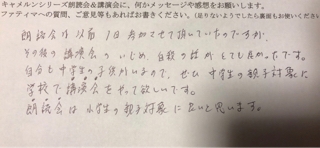 キャメルンシリーズ朗読会&講演会に、何かメッセージや感想をお願いします。
ファティマへの質問、ご意見等もあればお書きください。(足りないようでしたら裏面もお使いください
朗読会は以前1日参加させて頂いていたのですが、
その後の講演会のいじめ、自殺の話がとても良かったです。
自分も中学生の子供がいるので、ぜひ中学生の親子対象に
学校で講演会をやって欲しいです。
朗読会は小学生の親子対象に良いと思います。